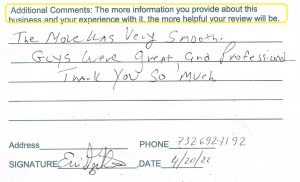 Additional Comments: The more information you provide about this
business and your experience with it, the more helpful your review will be.
The Move was Very Smooth.
Guys Were great, and Professional
Thank You So Much
Address PHONE 732 692-7192
SIGNATURE DATE 4/20/22